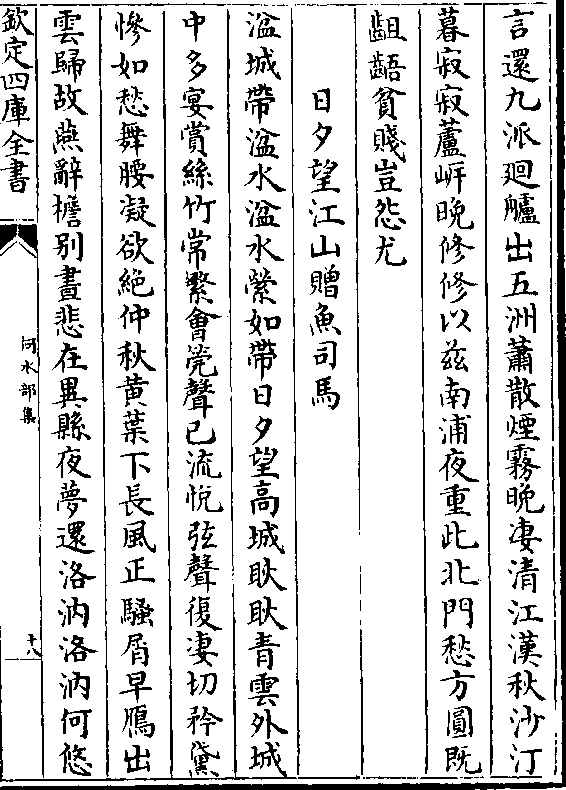 言還九派廻艫出五洲蕭散煙霧晚凄清江漢秋沙汀
暮寂寂蘆岍晚修修以兹南浦夜重此北門愁方圓既
齟齬貧賤豈怨尤
日夕望江山贈魚司馬
湓城帶湓水湓水縈如帶日夕望高城耿耿青雲外城
中多宴賞絲竹常繁會筦聲已流悅弦聲復凄切矜黛
慘如愁舞腰凝欲絶仲秋黄葉下長風正騷屑早鴈出
雲歸故燕辭檐别晝悲在異縣夜夢還洛汭洛汭何悠
欽定四庫全書
何水部集
十八